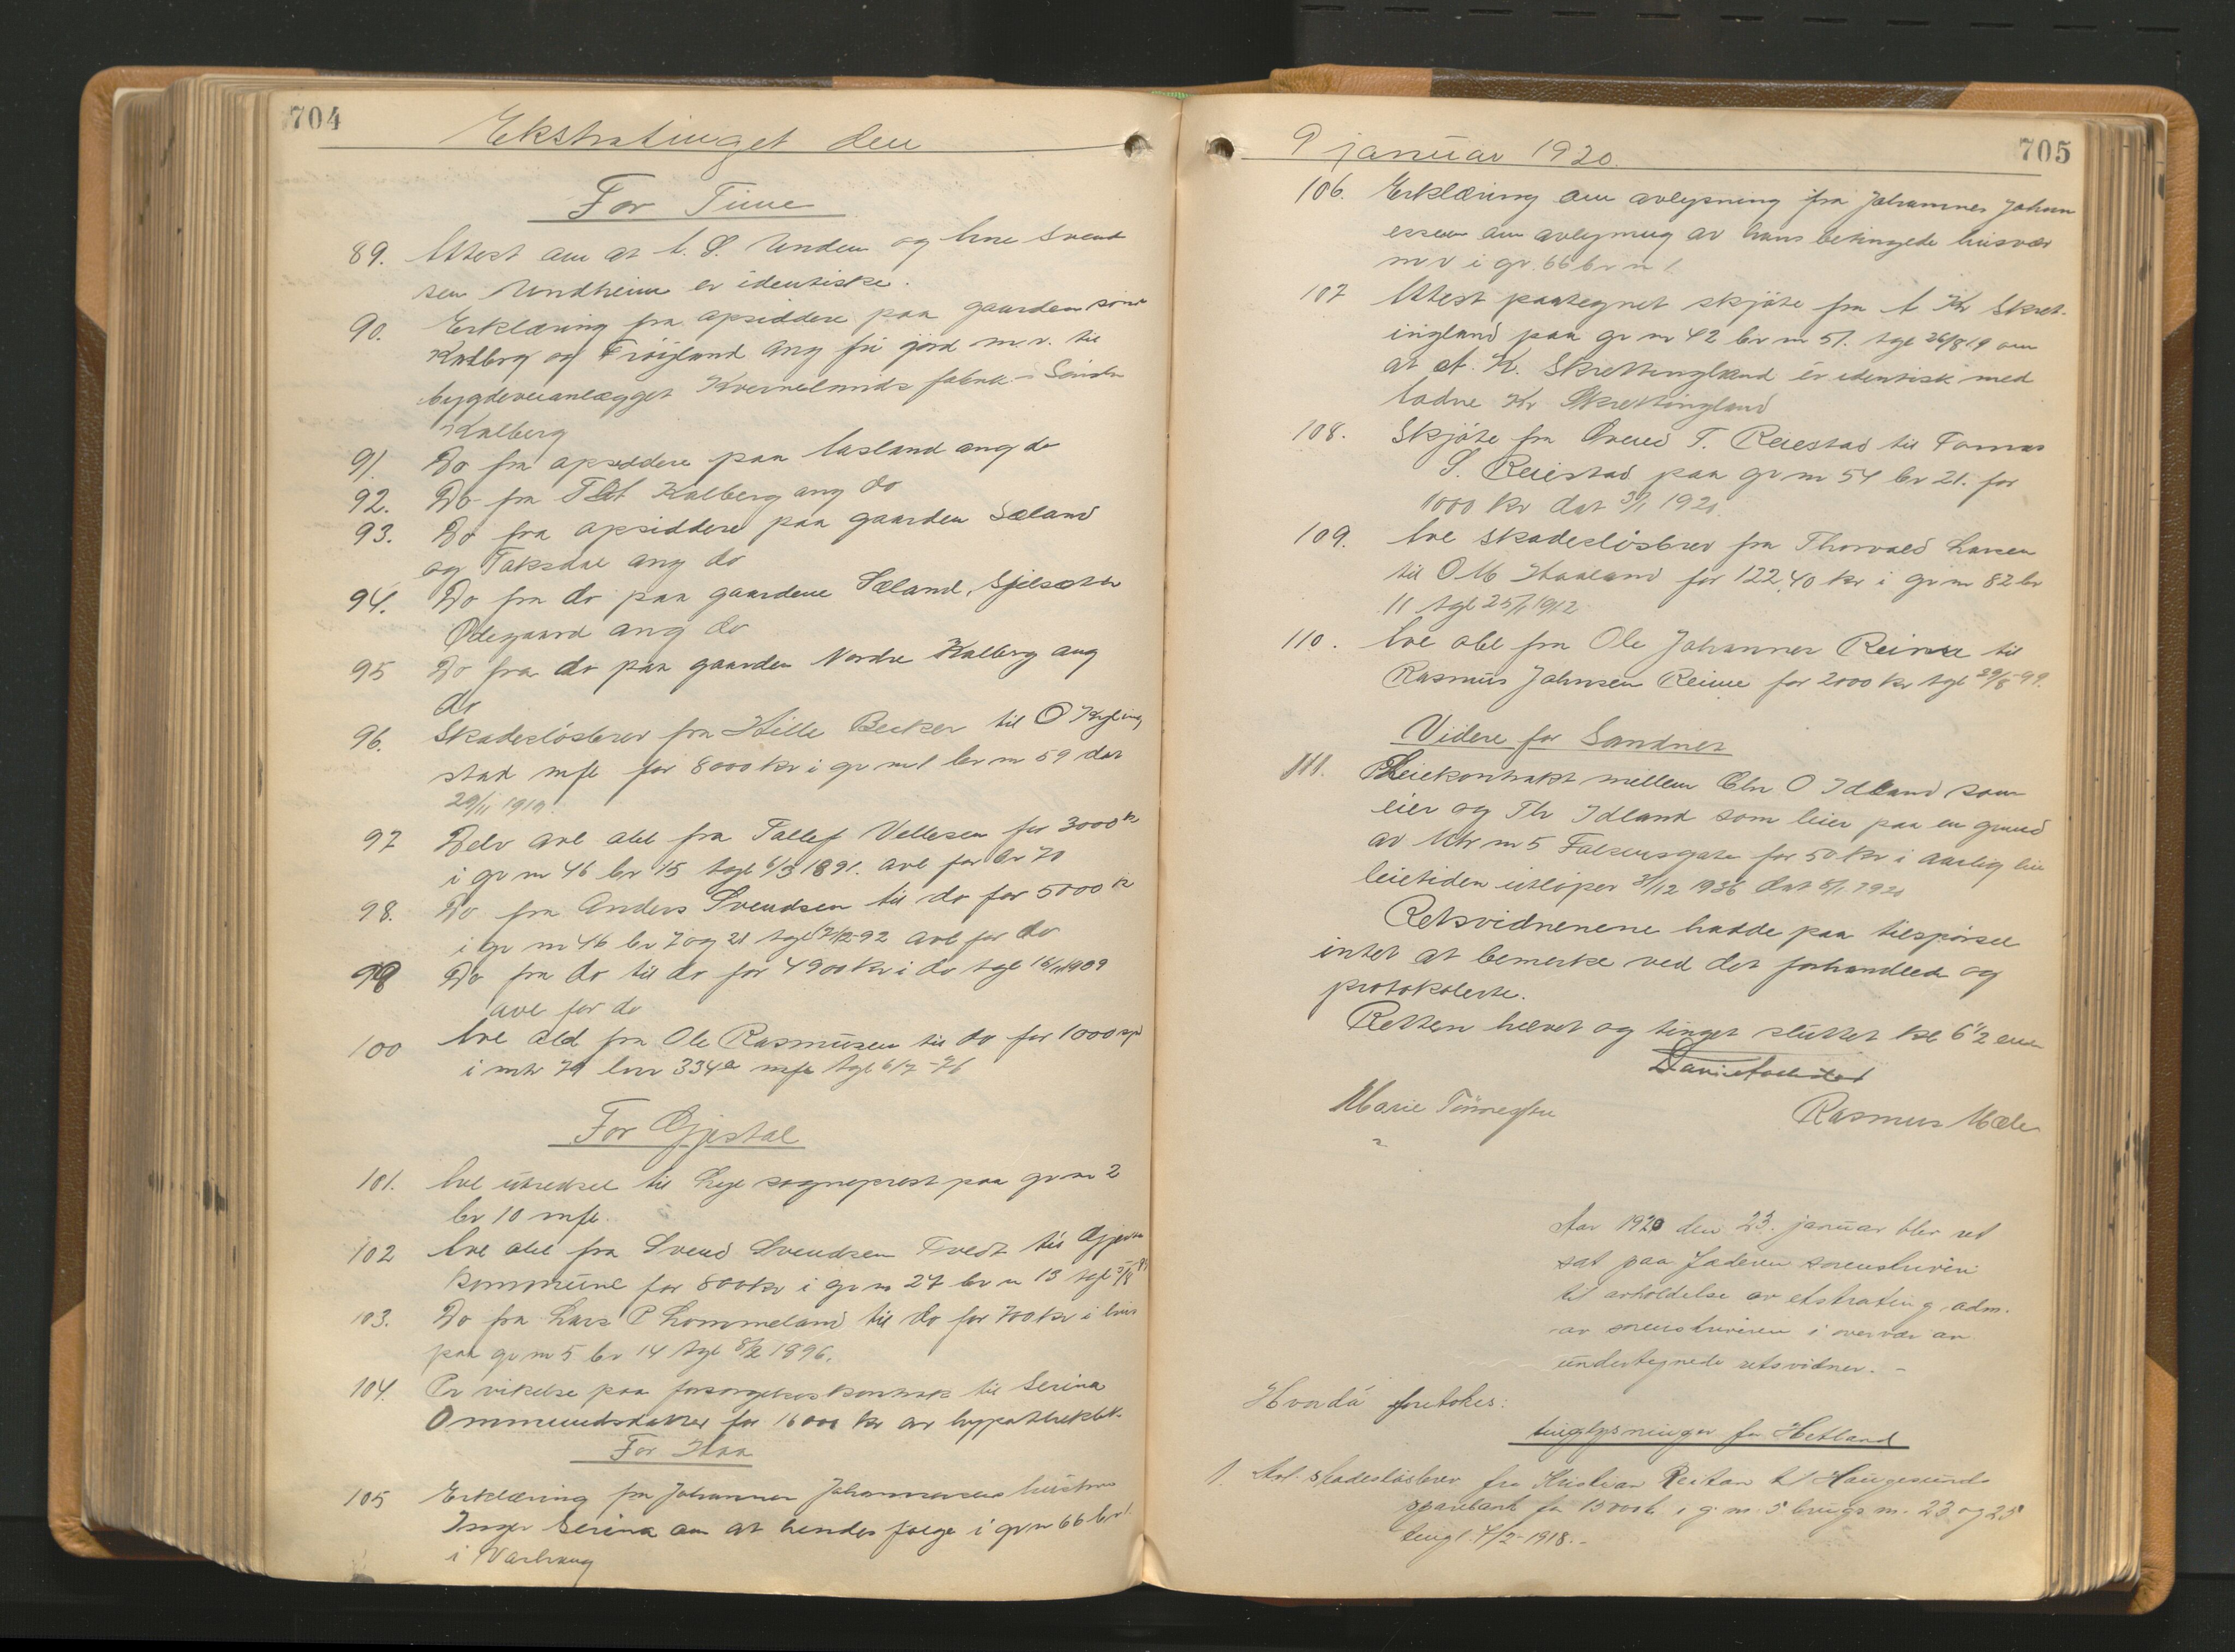 704
Ekstratinget den
For Time
89. Attest om at A. S. Undem og Arne Svend
sen Undheim er identiske.
90. Erklæring fra opsiddere paa gaarden søre
Kalberg og Frøiland ang fri jord m.v. til
bygdeveianlægget Kvernelands fabrik - Søndre
Kalberg
91. Do fra opsiddere paa Aasland ang do
92. Do fra T Kalberg ang do
93. Do fra opsiddere paa gaarden Sæland
og Taksdal ang do
94. Do fra do paa gaardene Sæland, Sjelset
Ødegaard ang do
95 Do fra do paa gaarden Nordre Kalberg ang
do
96. Skadesløsbrev fra Hille Becker til O Kyllings
stad mfl for 8000 kr i gr nr 1 br nr 59 dat
29/11 1919.
97 Delv avl obl fra Tallef Vellesen for 3000 kr
i gr nr 46 br 45 tgl 6/3 1891. avl for br 70
98. Do fra Anders Svendsen til do for 5000 kr
i gr nr 46 br 7 og 21 tgl 17/12-92 avl for do
99 Do fra do til do for 4900 kr i do tgl 16/11 1909
avl for do
100 Avl obl fra Ole Rasmussen til do for 1000 spd
i mtr 79 lnr 334a mfl tgl 6/7-76
For Gjestal
101. Avl utredsel til Lye sogneprest paa gr nr 2
br 10 mfl.
102 Avl obl fra Svend Svendsen Tvedt til Gjestal
kommune for 800 kr i gr nr 27 br nr 13 tgl
103. Do fra Lars P Lommeland til do for 700 kr i hus
paa gr nr 5 br 14 tgl 8/2 1896.
104. Pr vikelse paa forsørgelseskontrakt til Serina
Ommundsdatter for 16000 kr av hypotekbk.
For Haa
105 Erklæring fra Johannes Johannessens hustru
Inger Serina om at hendes folge i gr nr 66 br 1
i Varhaug
9 januar 1920.
705
106. Erklæring om avlysning fra Johannes Johann
essen om avlysning av hans betingede husvær
m v i gr. 66 br nr 1
107 Attest paategnet skjøte fra A. Kr Skret-
ingland paa gr nr 42 br nr 51. tgl 26/8 19 om
at A. K. Skrettingland er identisk med
Aadne Kr Skretingland
108. Skjøte fra Svend T. Reiestad til Tomas
S. Reiestad paa gr nr 54 br 21. for
1000 kr dat 3/1 1920.
109. Avl skadesløsbrev fra Thorvald Larsen
til O M Haaland for 122,40 kr i gr nr 82 br
11 tgl 25/1 1912
110. Avl obl fra Ole Johannes Reime til
Rasmus Johnsen Reime for 2000 kr tgl 29/8-99.
Videre for Sandnes
111. Leiekontrakt mellem Chr O Idland som
eier og Th Idland som leier paa en grund
av Mtr nr 5 Falsensgate for 50 kr i aarlig leie
leietiden utløper 31/12 1936 dat 8/1 1920
Retsvidnenene hadde paa tilspørsel
intet at bemerke ved det forhandlede og
protokolerte.
Retten hævet og tinget sluttet kl 6 1/2 em
Marie Tønnessen
Rasmus Mæle
Aar 1920 den 23. januar blev ret
sat paa Jæderen sorenskriveri
til avholdelse av ekstrating adm.
av sorenskriveren i overvær av
undertegnede retsvidner. -
Hvorda foretokes:
tinglysninger for Hetland
1. Avl. skadesløsbrev fra Kristian Reitan til Haugesunds
sparebank for 15000 kr i g. nr. 5 brugs nr. 23 og 25
tingl. 4/2-1918.-